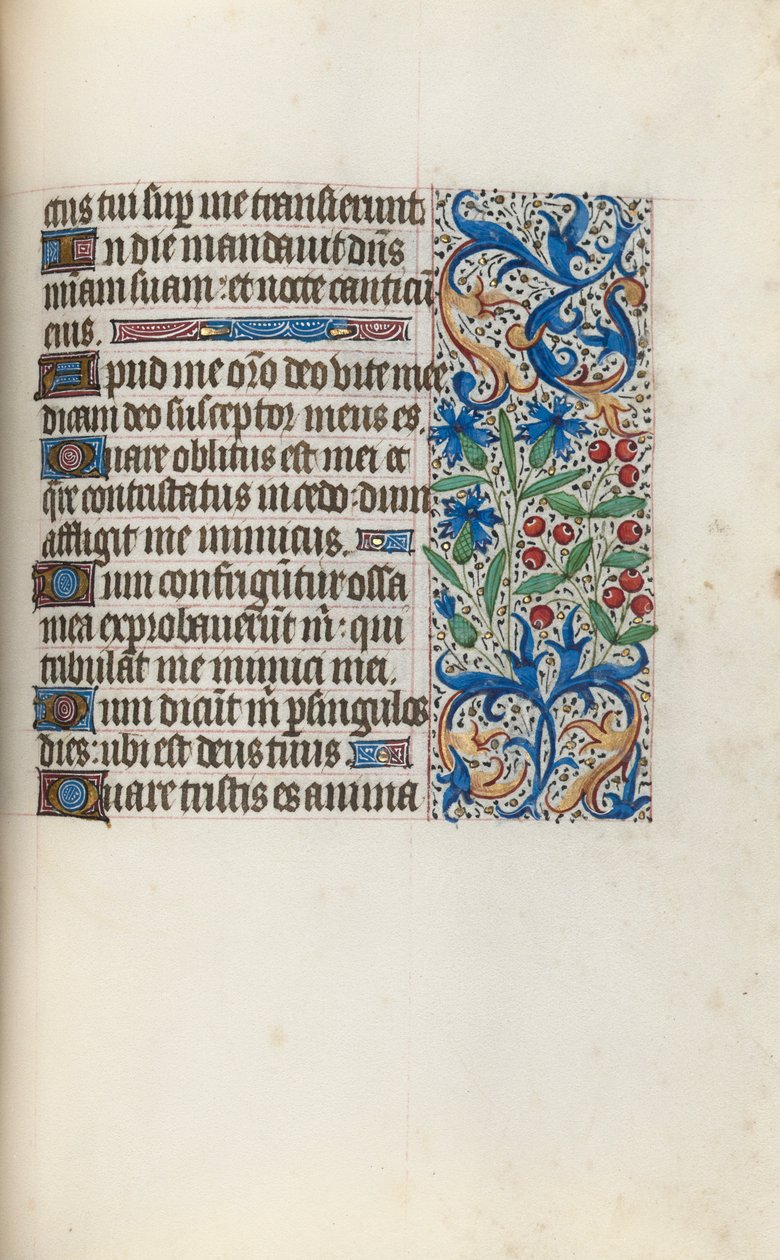 ctus tui sup me transierunt.
In die mandauit dn̄s
mīam suam: et nocte canticū
eius.
Apud me orō deo vite mee
dicam deo susceptor meus es.
Quare oblitus est mei et
qr̄e contristatus incedo: dum
affligit me inimicus.
Dum confrigūtur ossa
mea exprobauerūt m̄: qui
tribulāt me inimici mei.
Dum dicūt m̄ p singulos
dies: ubi est deus tuus.
Quare tristis es anima